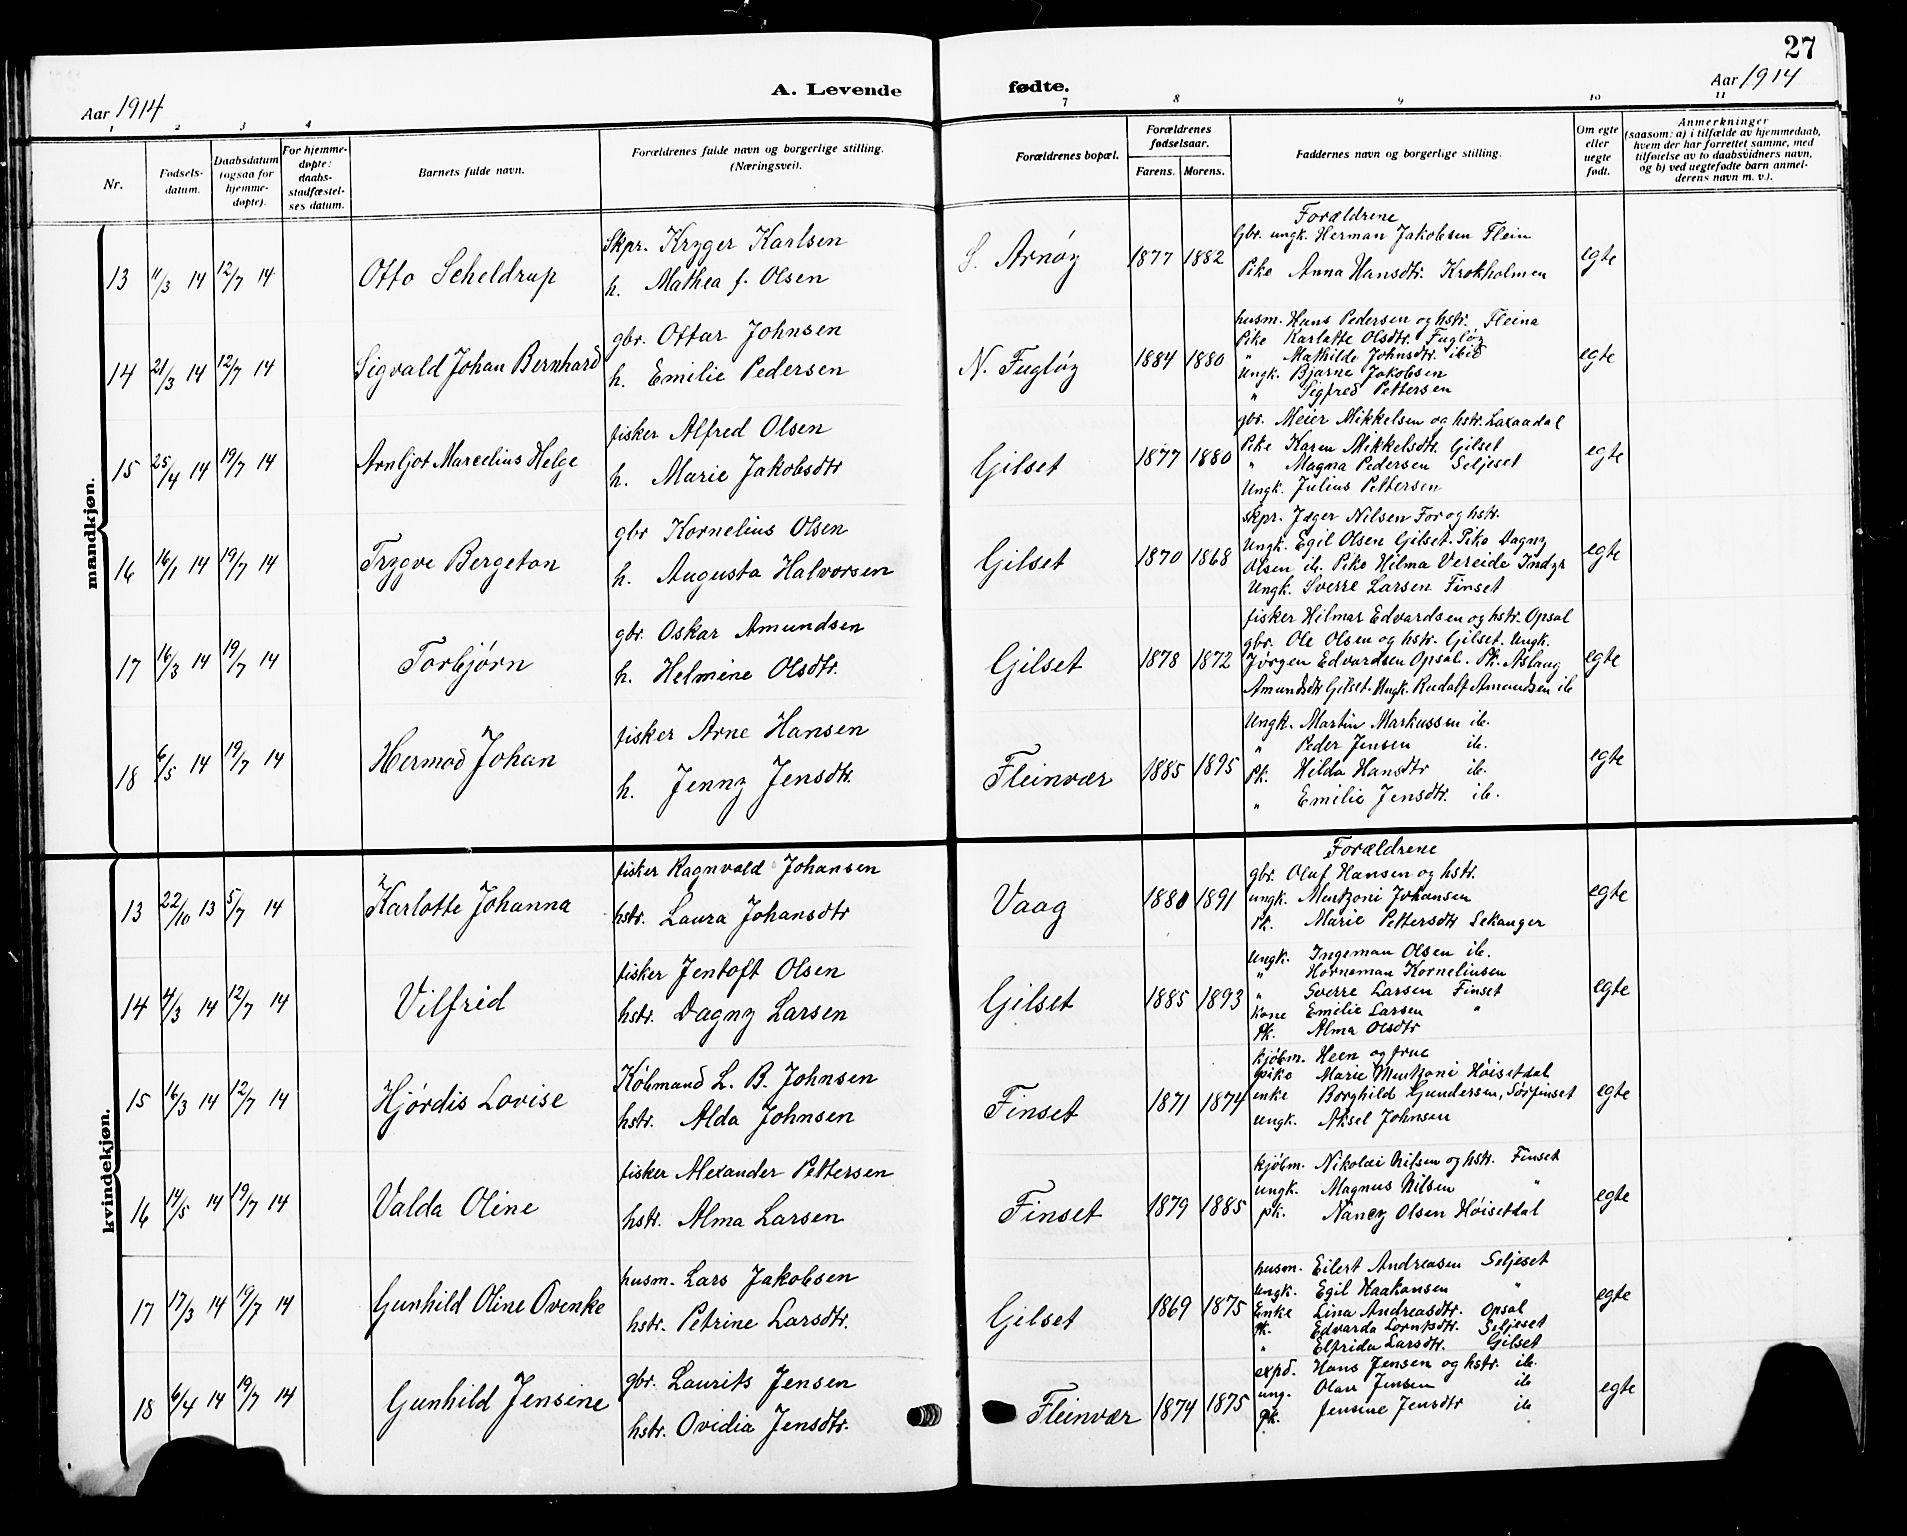 27
Aar 1914
A. Levende fødte.
Aar 1914
1 2 3 4 7 8 9 10 11
Nr.
Fødsels-
datum.
Daabsdatum
(ogsaa for
hjemme-
døpte).
For hjemme-
døpte:
daabs-
stadfæstel-
ses datum.
Barnets fulde navn.
Forældrenes fulde navn og borgerlige stilling.
(Næringsvei).
Forældrenes bopæl.
Forældrenes
fødselsaar.
Farens. Morens.
Faddernes navn og borgerlige stilling.
Om egte
eller
uegte
født.
Anmerkninger
(saasom: a) i tilfælde av hjemmedaab,
hvem der har forrettet samme, med
tilføielse av to daabsvidners navn,
og b) ved uegtefødte barn anmel-
derens navn m. v.).
mandkjøn.
13 11/3 14 12/7 14 Otto Scheldrup
Skpr. Kryger Karlsen
h. Mathea f. Olsen
S. Arnøy 1877 1882
Forældrene
Gbr. ungk. Herman Jakobsen Flein
Pike Anna Hansdtr. Krokholmen
egte
14 21/3 14 12/7 14 Sigvald Johan Bernhard
gbr. Ottar Johnsen
h. Emilie Pedersen
N. Fugløy 1884 1880
husm. Hans Pedersen og hstr. Fleina
Pike Karlotte Olsdtr. Fugløy
" Mathilde Johnsdtr. ibid
Ungk. Bjarne Jakobsen
" Sigfred Pettersen
egte
15 25/4 14 19/7 14 Arnljot Marcelius Helge
fisker Alfred Olsen
h. Marie Jakobsdtr
Gilset 1877 1880
gbr. Meier Mikkelsen og hstr. Laxaadal
Pike Karen Mikkelsdtr. Gilset
" Magna Pedersen Seljeset
Ungk. Julius Pettersen
egte
16 16/1 14 19/7 14 Trygve Bergeton
gbr Kornelius Olsen
h. Augusta Halvorsen
Gilset 1870 1868
skpr. Jæger Nilsen For og hstr.
Ungk. Egil Olsen Gilset. Pike Dagny
Olsen ib. Pike Hilma Vereide Indyr
Ungk. Sverre Larsen Finset
egte
17 16/3 14 19/7 14 Torbjørn
gbr. Oskar Amundsen
h. Helmine Olsdtr.
Gilset 1878 1872
fisker Hilmar Edvardsen og hstr. Opsal
gbr. Ole Olsen og hstr. Gilset. Ungk.
Jørgen Edvardsen Opsal. Pk. Aslaug
Amundsdtr Gilset. Ungk. Rudolf Amundsen ib
egte
18 6/5 14 19/7 14 Hermod Johan
fisker Arne Hansen
h. Jenny Jensdtr.
Fleinvær 1885 1895
Ungk. Martin Markussen ib.
" Peder Jensen ib.
Pk. Hilda Hansdtr ib.
" Emilie Jensdtr. ib.
egte
kvindekjøn.
13 22/10 13 5/7 14 Karlotte Johanna
fisker Ragnvald Johansen
hstr. Laura Johansdtr
Vaag 1880 1891
Forældrene
gbr. Oluf Hansen og hstr.
ungk. Mentzoni Johansen
Pk. Marie Pettersdtr Sekanger
egte
14 4/3 14 12/7 14 Vilfrid
fisker Jentoft Olsen
hstr. Dagny Larsen
Gilset 1885 1893
ungk. Ingeman Olsen ib.
" Horneman Korneliusen
" Sverre Larsen Finset
Kone Emilie Larsen "
Pk. Alma Olsdtr
egte
15 16/3 14 12/7 14 Hjørdis Lovise
Købmand L. B. Johnsen
hstr. Alda Johnsen
Finset 1871 1874
kjøbm. Heen og frue
pike Marie Mentzoni Høisetdal
enke Borghild Gundersen, Sørfinset
ungk. Aksel Johnson
egte
16 14/5 14 19/7 14 Valda Oline
fisker Alexander Pettersen
hstr. Alma Larsen
Finset 1879 1885
kjøbm. Nikolai Nilsen og hstr. Finset
ungk. Magnus Nilsen "
pk. Nancy Olsen Høisetdal
egte
17 17/3 14 19/7 14 Gunhild Oline Ovenke
husm. Lars Jakobsen
hstr. Petrine Larsdtr.
Gilset 1869 1875
husm. Eilert Andreasen Seljeset
Ungk. Egil Haakonsen "
Enke Lina Andreasdtr. Opsal
Pk. Edvarda Lorntsdtr. Seljeset
" Elfrida Larsdtr. Gilset
egte
18 6/4 14 19/7 14 Gunhild Jensine
gbr. Laurits Jensen
hstr. Ovidia Jensdtr.
Fleinvær 1874 1875
expd. Hans Jensen og hstr. ib.
ung. Olav Jensen ib
pk. Jensine Jensdtr ib
egte